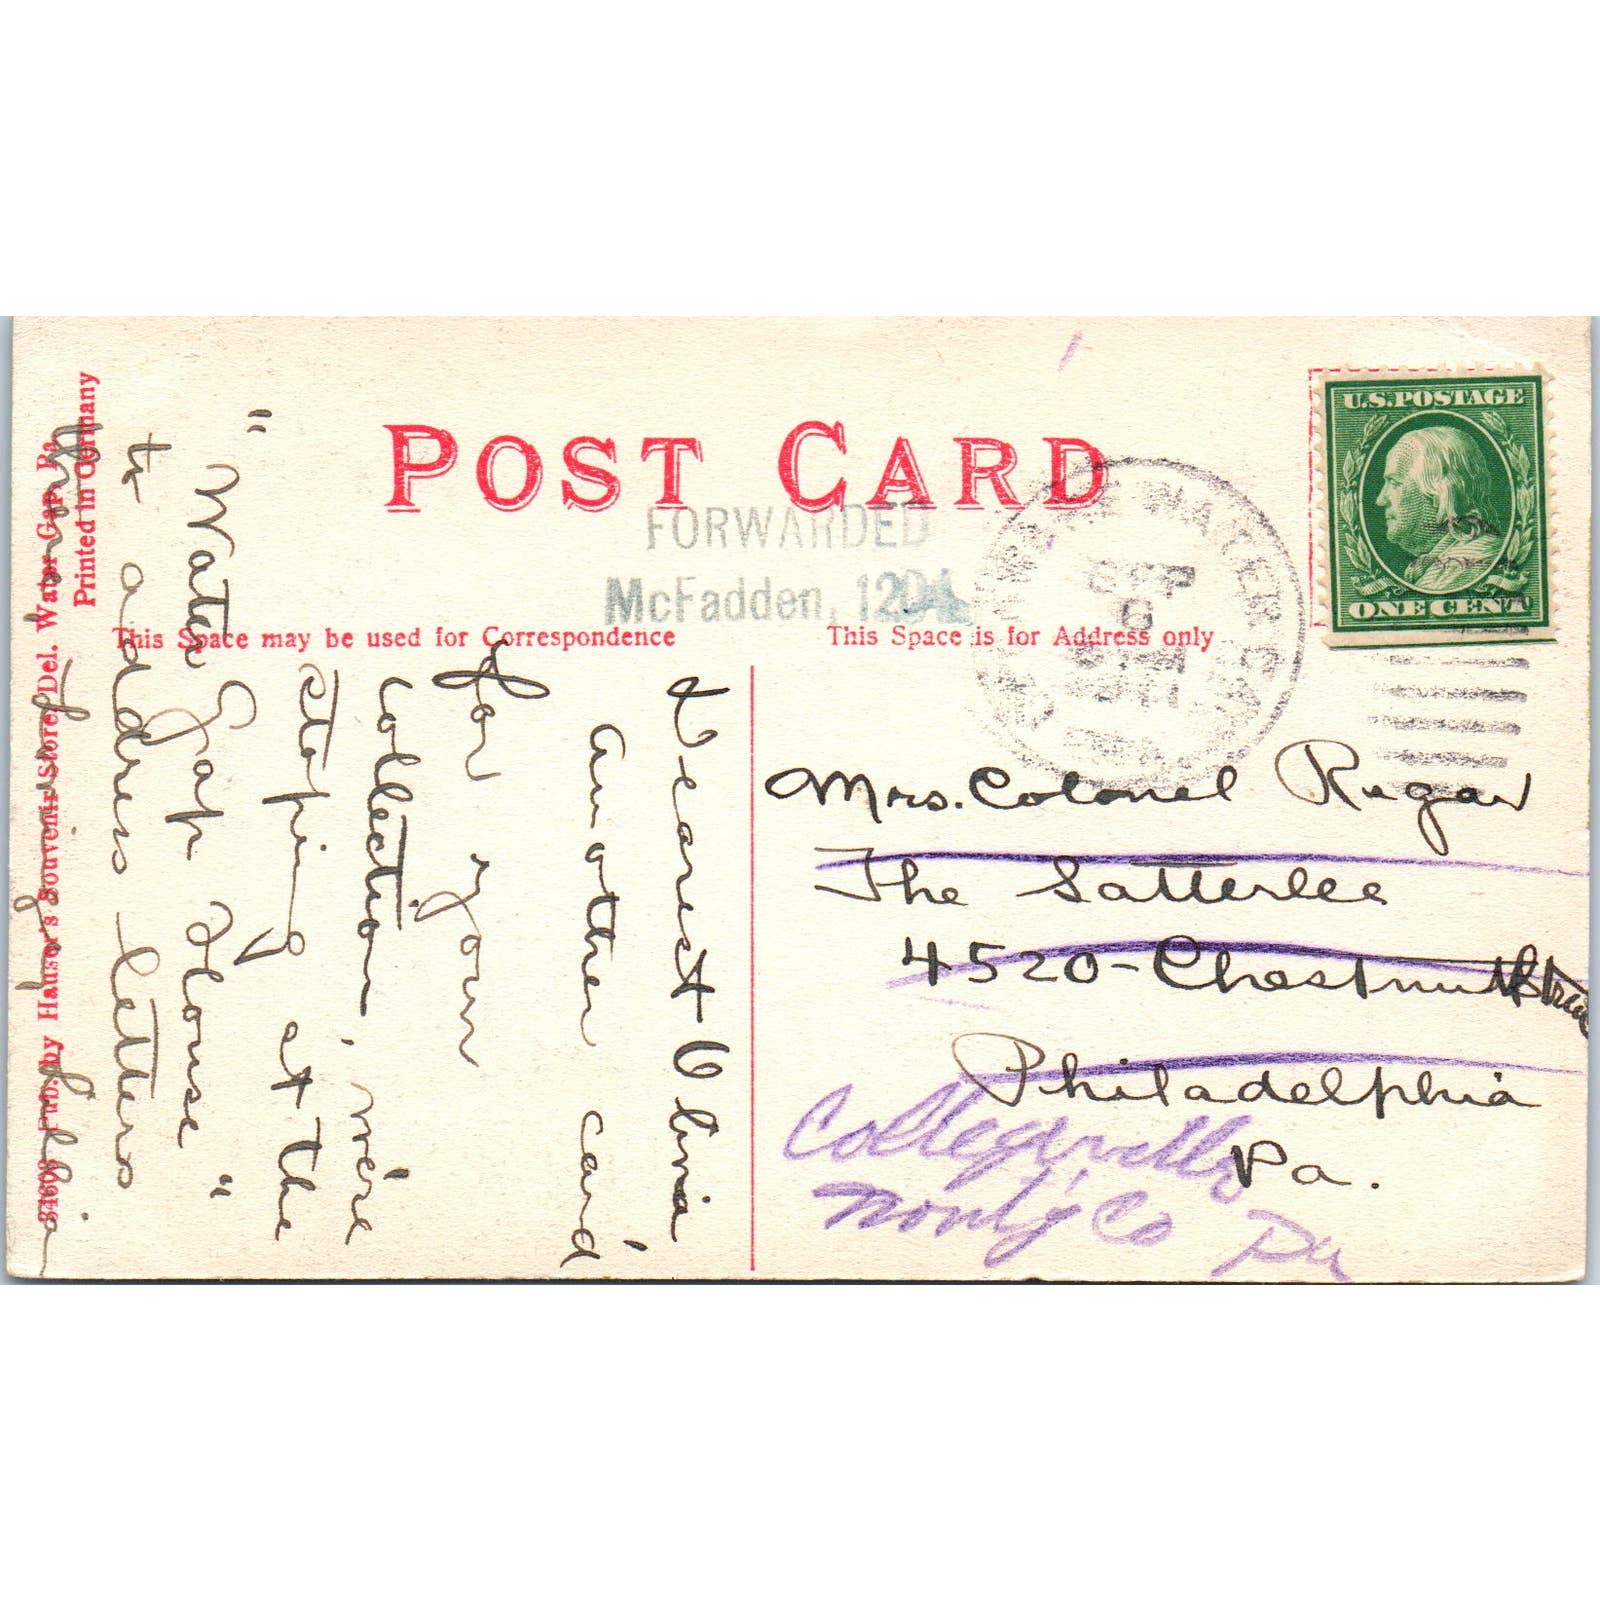 POST CARD
U.S. POSTAGE
ONE CENT
FORWARDED
McFadden, 1204
WATER GAP
SEP
6
1911
This Space may be used for Correspondence
This Space is for Address only
Dearest Olivia
another card
for your
collection, we're
stoping at the
"Water Gap House"
to address letters
there
Mrs. Colonel
The Satterlee
4520 - Chestnut Street
Philadelphia
Pa.
Collegeville
Mont'g Co Pa
34608 Pub. by Hauser's Souvenir Store, Del. Water Gap, Pa.
Printed in Germany